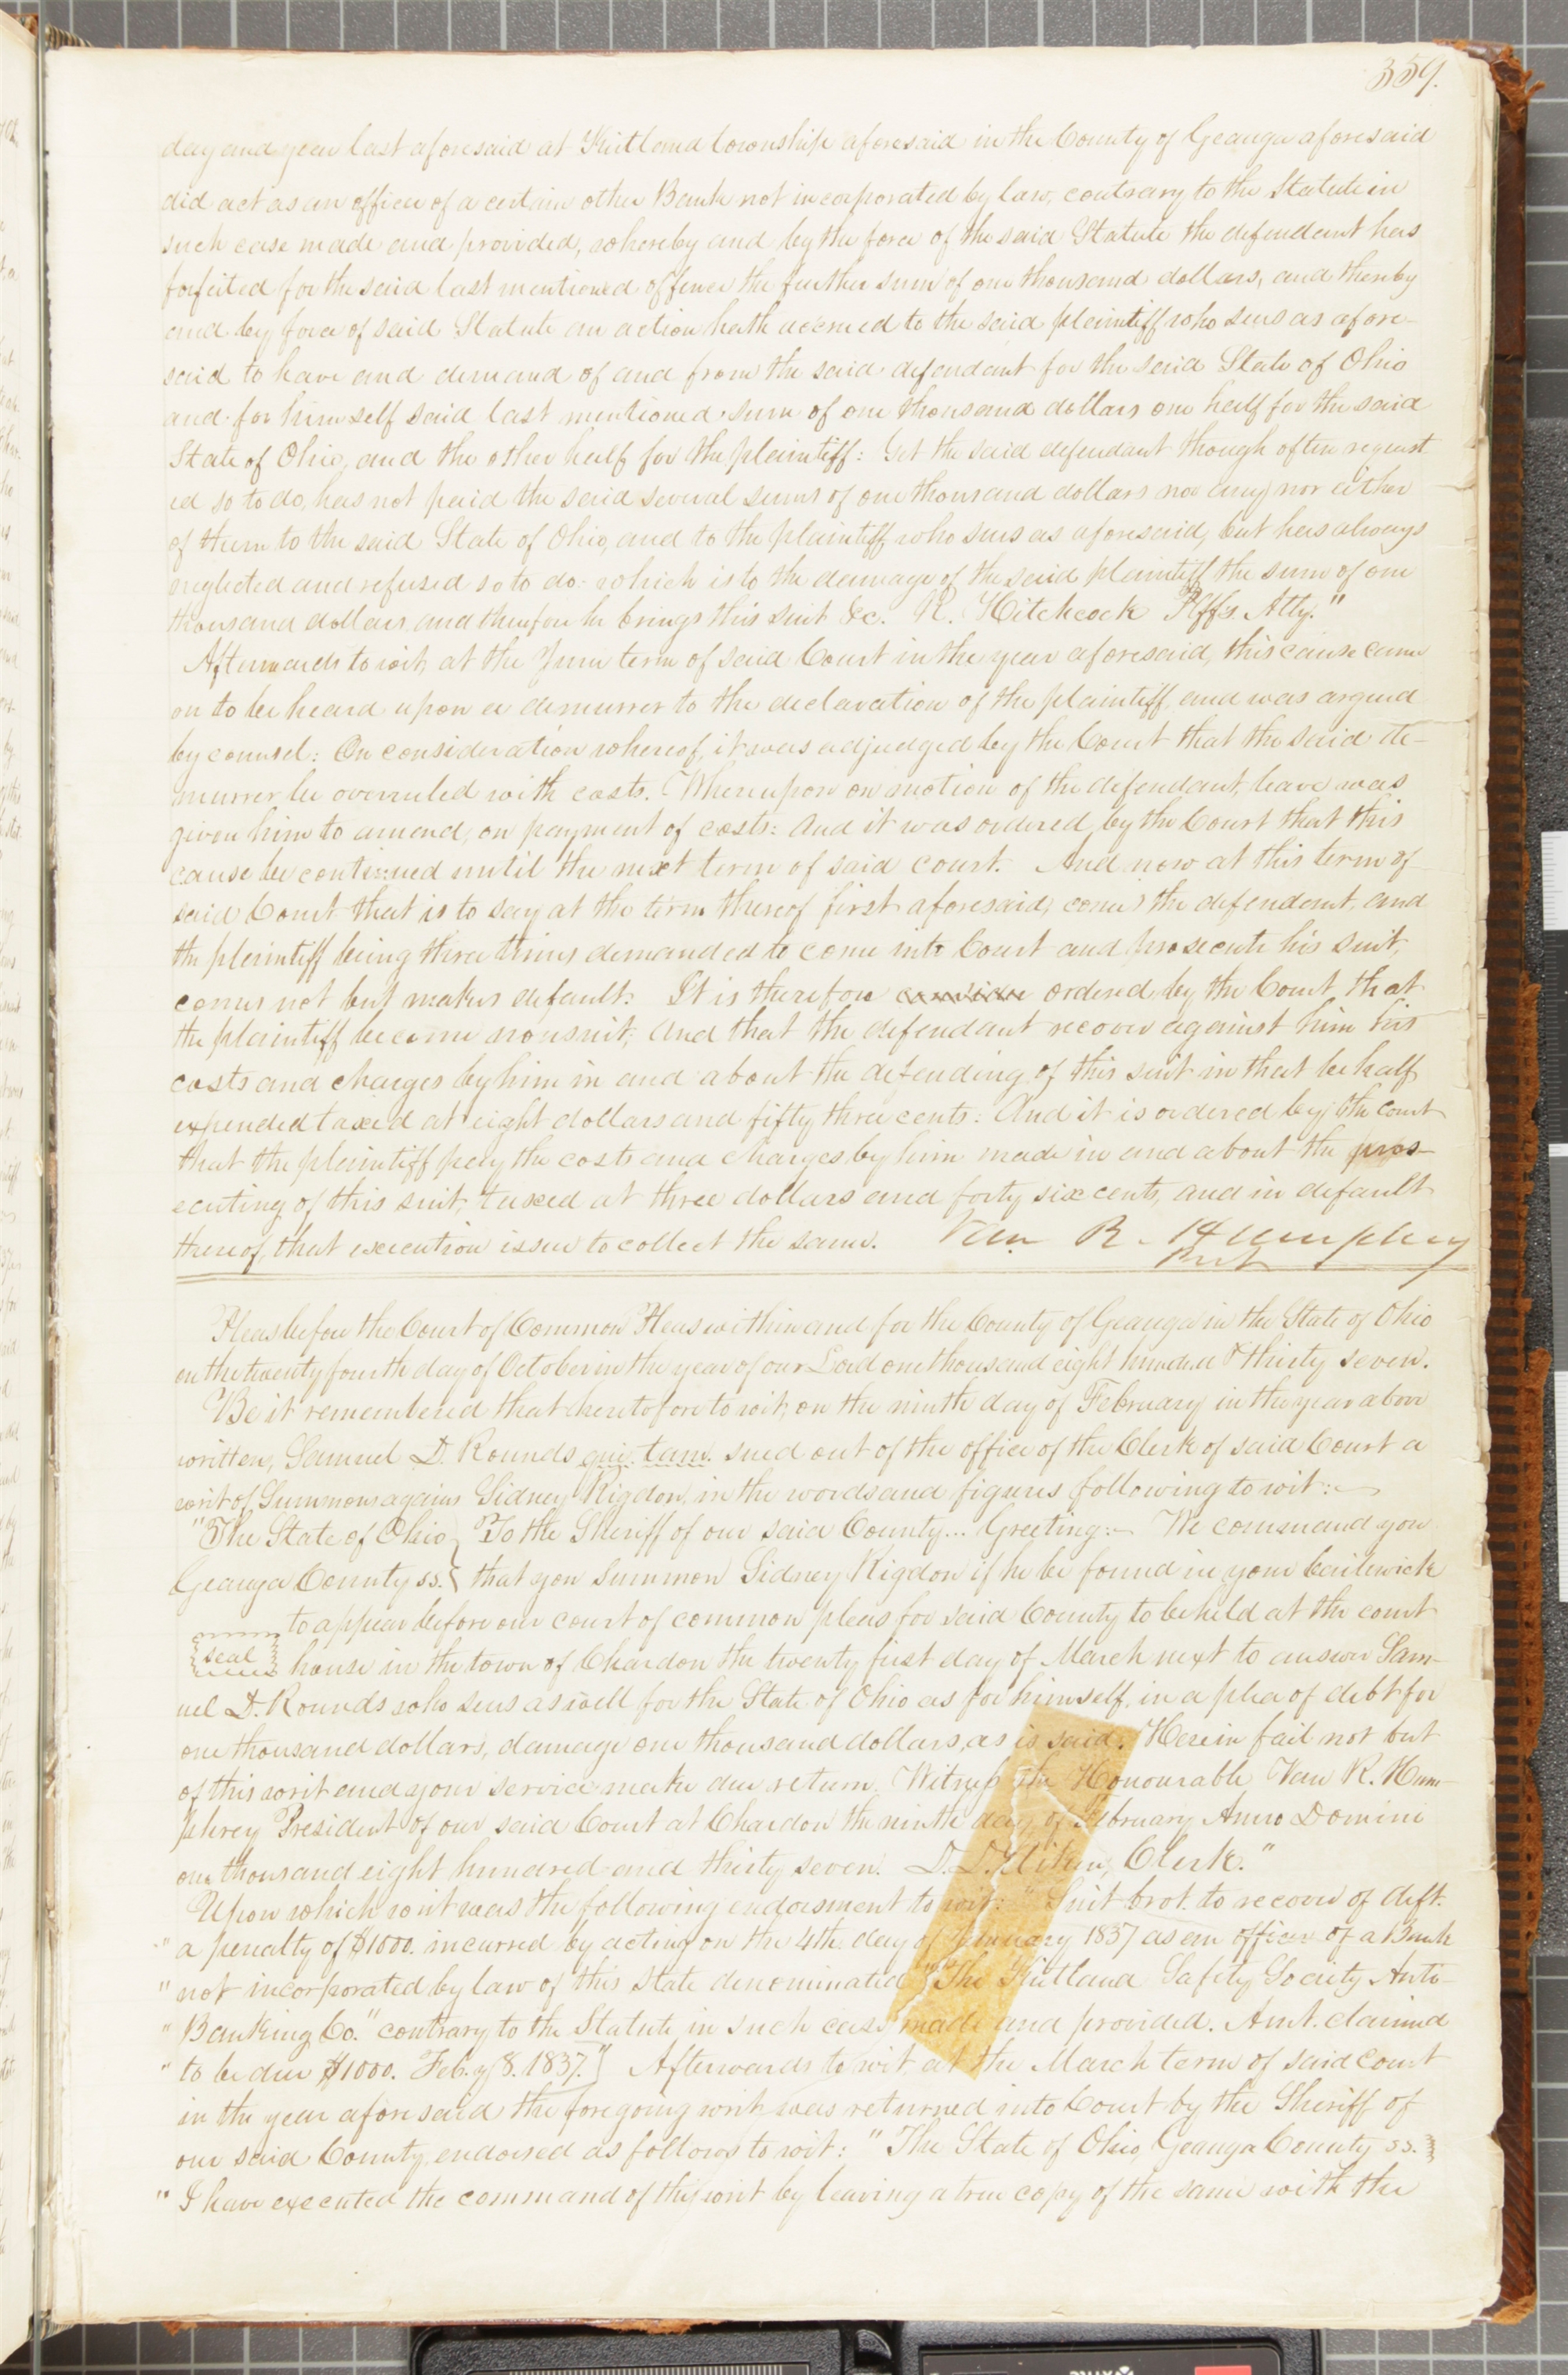 359.
day and year last aforesaid at Kirtland township aforesaid in the County of Geauga aforesaid
did act as an officer of a certain other Bank not incorporated by law, contrary to the Statute in
such case made and provided, whereby and by the force of the said Statute the defendant has
forfeited for the said last mentioned offence the further sum of one thousand dollars, and thereby
and by force of said Statute an action hath accrued to the said plaintiff who sues as afore-
said to have and demand of and from the said defendant for the said State of Ohio
and for himself said last mentioned sum of one thousand dollars one half for the said
State of Ohio, and the other half for the plaintiff: Yet the said defendant though often request
ed so to do, has not paid the said several sums of one thousand dollars nor any nor either
of them to the said State of Ohio, and to the plaintiff who sues as aforesaid, but has always
neglected and refused so to do: which is to the damage of the said plaintiff the sum of one
thousand dollars, and therefore he brings this suit &c. R. Hitchcock Plffs. Atty."
Afterwards to wit, at the June term of said Court in the year aforesaid, this cause came
on to be heard upon a demurrer to the declaration of the plaintiff, and was argued
by counsel: On consideration whereof, it was adjudged by the Court that the said de-
murrer be overruled with costs. Whereupon on motion of the defendant, leave was
given him to amend, on payment of costs: And it was ordered by the Court that this
cause be continued until the next term of said court. And now at this term of
said Court that is to say at the term thereof first aforesaid, comes the defendant, and
the plaintiff being three times demanded to come into Court and prosecute his suit,
comes not but makes default: It is therefore ordered by the Court, that
the plaintiff become nonsuit; And that the defendant recover against him his
costs and charges by him in and about the defending of this suit in that behalf
expended taxed at eight dollars and fifty three cents: And it is ordered by the court
that the plaintiff pay the costs and charges by him made in and about the pros-
ecuting of this suit, taxed at three dollars and forty six cents, and in default
thereof, that execution issue to collect the same. Van R. Humphrey
Prest
Pleas before the Court of Common Pleas within and for the County of Geauga in the State of Ohio
on the twenty fourth day of October in the year of our Lord one thousand eight hundred & thirty seven.
Be it remembered that heretofore to wit, on the ninth day of February in the year above
written, Samuel D. Rounds qui. tam. sued out of the office of the Clerk of said Court a
writ of Summons agains Sidney Rigdon, in the words and figures following to wit:
"The State of Ohio } To the Sheriff of our said County... Greeting: We command you
Geauga County ss. { that you summon Sidney Rigdon if he be found in your bailiwick
to appear before our court of common pleas for said County to be held at the court
seal house in the town of Chardon the twenty first day of March next to answer Sam-
uel D. Rounds who sues as well for the State of Ohio as for himself, in a plea of debt for
one thousand dollars, damage one thousand dollars, as is said. Herein fail not but
of this writ and your service make due return. Witness the Honourable Van R. Hum-
phrey President of our said Court at Chardon the ninth day of February Anno Domini
one thousand eight hundred and thirty seven. D. D. Aiken, Clerk."
Upon which writ was the following endorsment to wit: "Suit brot. to recover of deft.
" a penalty of $1000. incurred by acting on the 4th. day of January 1837 as an officer of a Bank
" not incorporated by law of this State denominated "The Kirtland Safety Society Anti-
" Banking Co." contrary to the Statute in such case made and provided. Amt. claimed
" to be due $1000. Feb.y 8. 1837."] Afterwards to wit at the March term of said court
in the year aforesaid the foregoing writ was returned into Court by the Sheriff of
our said County, endorsed as follows to wit: "The State of Ohio, Geauga County ss. }
" I have executed the command of this writ by leaving a true copy of the same with the